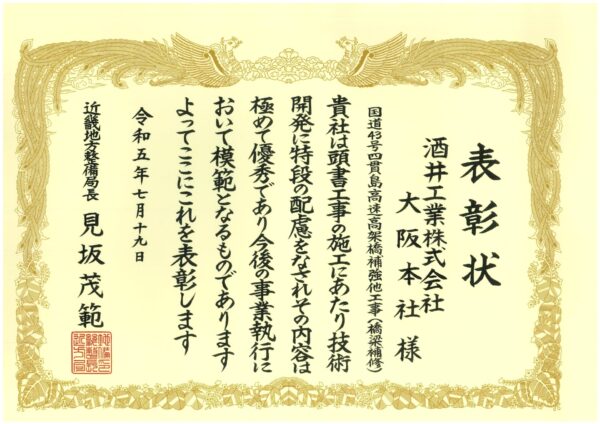 表彰状
酒井工業株式会社
大阪本社 様
国道43号四貫島高速高架橋補強他工事(橋梁補修)
貴社は頭書工事の施工にあたり技術
開発に特段の配慮をなされその内容は
極めて優秀であり今後の事業執行に
おいて模範となるものであります
よってここにこれを表彰します
令和五年七月十九日
近畿地方整備局長 見坂茂範